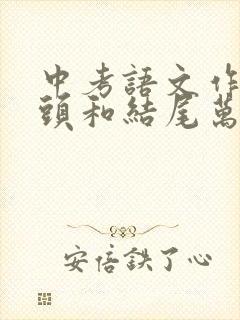 中考語文作
頭和結尾萬
安倍鉄了心